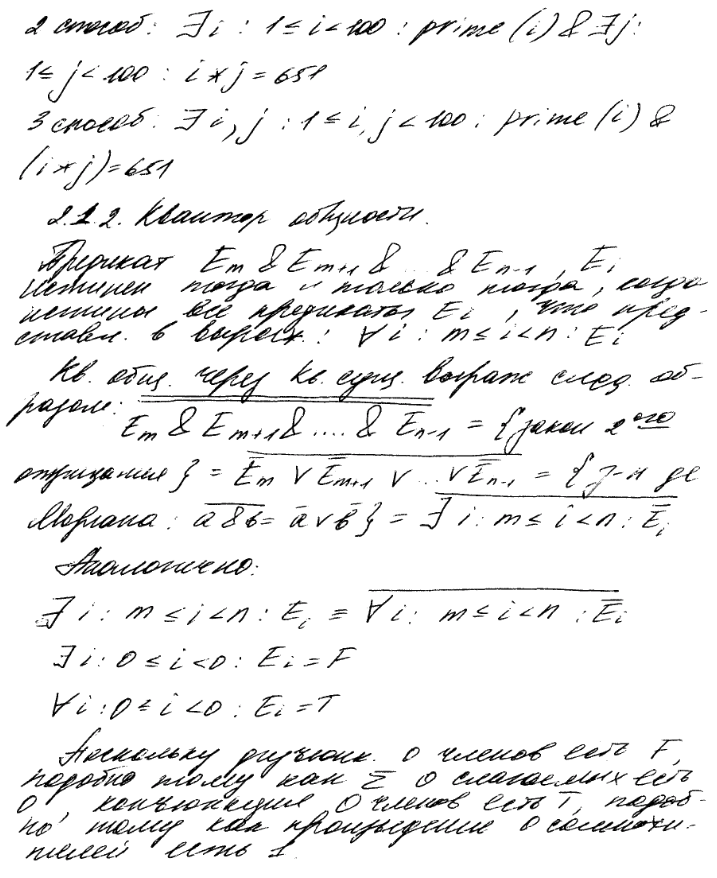 2 способ: ∃i : 1 ≤ i < 100 : prime (i) & ∃j:
1 ≤ j < 100 : i * j = 651
3 способ: ∃i, j : 1 ≤ i, j < 100 : prime (i) &
(i * j) = 651
2.1.2. Квантор общности.
Предикат Eₘ & Eₘ₊₁ & ... & Eₙ₋₁, Eᵢ
истинен тогда и только тогда, когда
истины все предикаты Eᵢ, что пред-
ставл. в выраж.: ∀i : m ≤ i < n : Eᵢ
Кв. общ. через кв. сущ. выраж след. об-
разом:
Eₘ & Eₘ₊₁ & .... & Eₙ₋₁ = {закон 2ого
отрицания} = Eₘ ∨ Eₘ₊₁ ∨ ... ∨ Eₙ₋₁ = {з-н де
Моргана: a&b = a̅ ∨ b̅} = ∃i : m ≤ i < n : E̅ᵢ
Аналогично:
∃i : m ≤ i < n : Eᵢ = ∀i : m ≤ i < n : E̅ᵢ
∃i : 0 ≤ i < 0 : Eᵢ = F
∀i : 0 ≤ i < 0 : Eᵢ = T
Поскольку дизъюнк. 0 членов есть F,
подобно тому как Σ 0 слагаемых есть
0, конъюнкция 0 членов есть T, подоб-
но тому как произведение 0 сомножи-
телей есть 1.